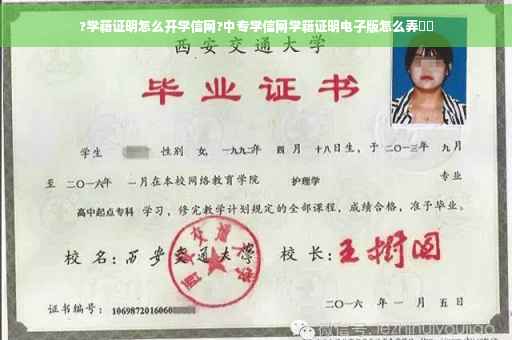 ?学藉证明怎么开学信网?中专学信网学籍证明电子版怎么弄▯▯
西安交通大学
毕业证书
学生 性别 女，一九九二年 四月 十八日生，于二〇一三年 九月
至 二〇一六年 一月在本校网络教育学院 护理学 专业
高中起点专科 学习，修完教学计划规定的全部课程，成绩合格，准予毕业。
校 名：西安交通大学 校 长：王树国
西安交通大学
证书编号：1069872016060
二〇一六 年 一 月 五 日
微信号: jiezhihuiyoujiao